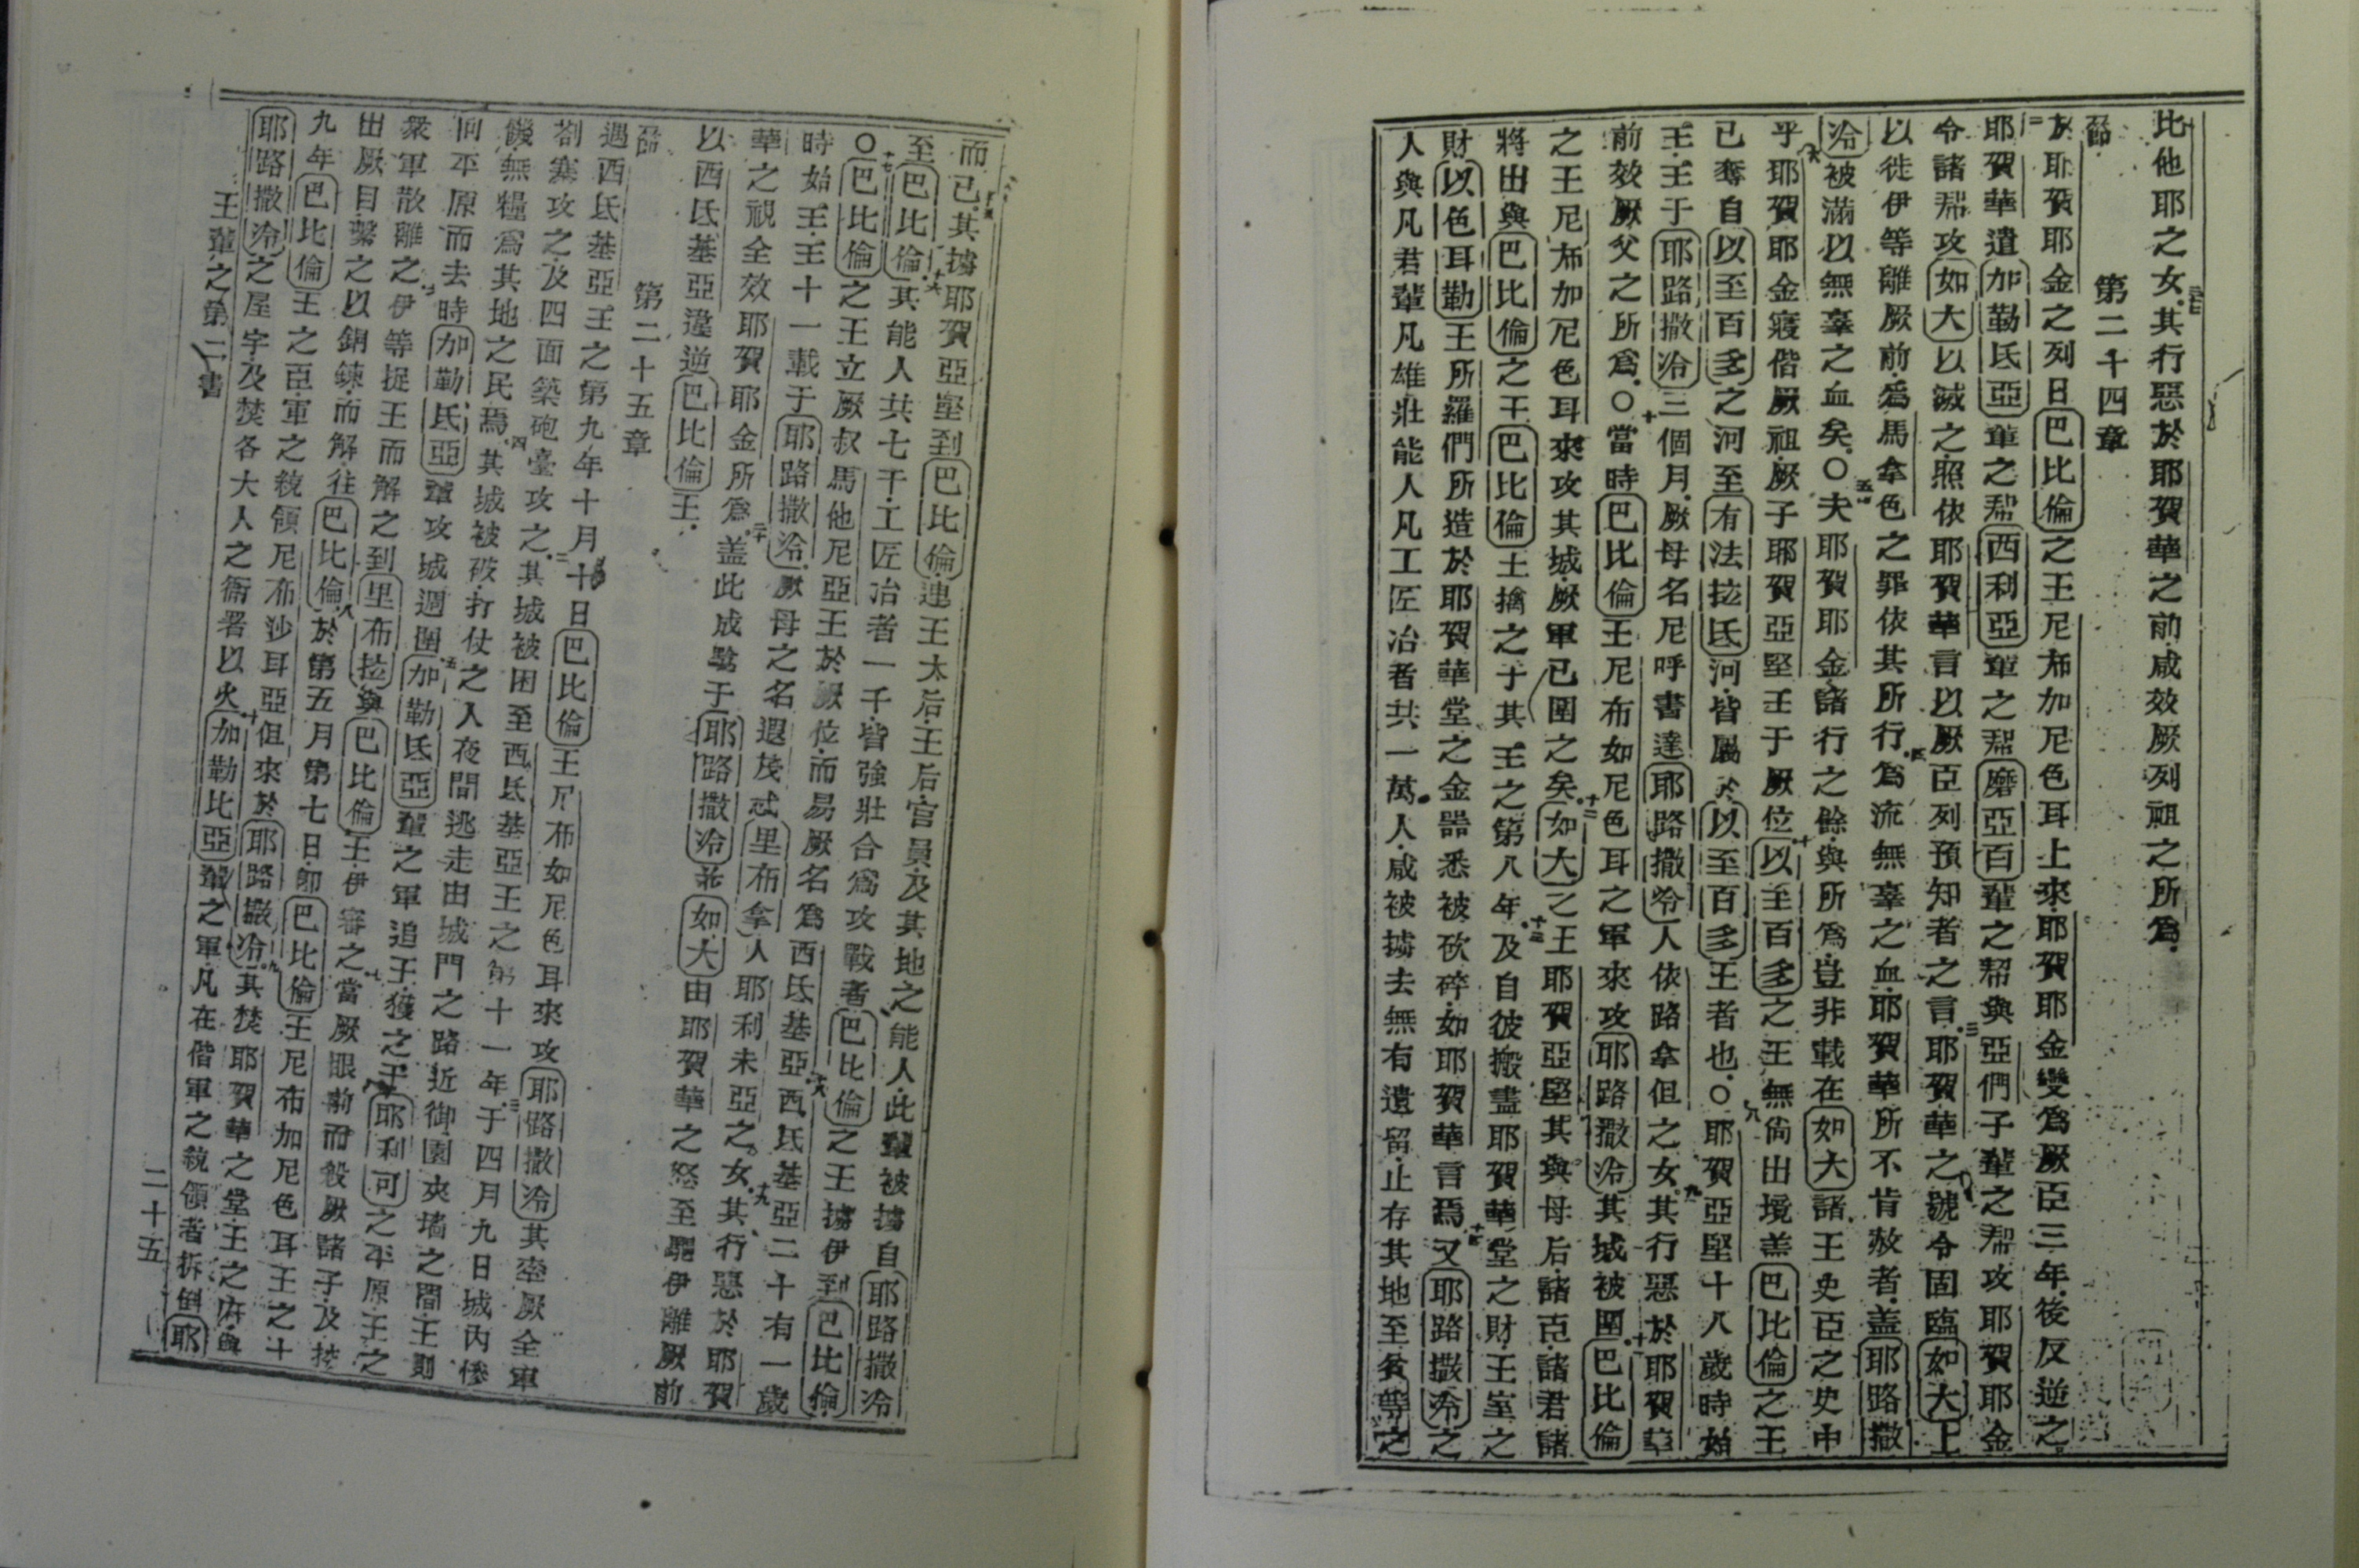 比他耶之女其行惡於耶賀華之前咸效厥列祖之所爲
第二十四章
節 於耶賀耶金之列日巴比倫之王尼布加尼色耳上來耶賀耶金變爲厥臣三年後反逆之
耶賀華遣加勒氐亞輩之幫西利亞輩之幫磨亞百輩之幫與亞們子輩之幫攻耶賀耶金
令諸幫攻如大以滅之照依耶賀華言以厥臣列預知者之言三耶賀華之號令固臨如大上
以徙伊等離厥前爲馬拿色之罪依其所行四爲流無辜之血耶賀華所不肯赦者盖耶路撒
冷被滿以無辜之血矣○五夫耶賀耶金諸行之餘與所爲豈非載在如大諸王史臣之史中
乎六耶賀耶金寢偕厥祖厥子耶賀亞堅王于厥位七以至百多之王無尙出境盖巴比倫之王
已奪自以至百多之河至有法拉氐河皆屬於以至百多王者也○八耶賀亞堅十八歲時始
王王于耶路撒冷三個月厥母名尼呼書達耶路撒冷人依路拿但之女九其行惡於耶賀華
前效厥父之所爲○十當時巴比倫王尼布如尼色耳之軍來攻耶路撒冷其城被圍十一巴比倫
之王尼布加尼色耳來攻其城厥軍已圍之矣十二如大之王耶賀亞堅其與母后諸臣諸君諸
將出與巴比倫之王巴比倫王擒之于其王之第八年十三及自彼搬盡耶賀華堂之財王室之
財以色耳勒王所羅們所造於耶賀華堂之金噐悉被砍碎如耶賀華言焉十四又耶路撒冷之
人與凡君輩凡雄壯能人凡工匠冶者共一萬人咸被擄去無有遺留止存其地至貧等之
而已十五其擄耶賀亞堅到巴比倫連王太后王后官員及其地之能人此輩被擄自耶路撒冷
至巴比倫十六其能人共七千工匠冶者一千皆強壯合爲攻戰者巴比倫之王擄伊到巴比倫
○十七巴比倫之王立厥叔馬他尼亞王於厥位而易厥名爲西氐基亞十八西氐基亞二十有一歲
時始王王十一載于耶路撒冷厥母之名遐茂忒里布拿人耶利未亞之女十九其行惡於耶賀
華之視全效耶賀耶金所爲二十盖此成騐于耶路撒冷並如大由耶賀華之怒至驅伊離厥前
以西氐基亞違逆巴比倫王
第二十五章
節 遇西氐基亞王之第九年十月十日巴比倫王尼布如尼色耳來攻耶路撒冷其牽厥全軍
劄寨攻之及四面築砲臺攻之二其城被困至西氐基亞王之第十一年三于四月九日城內慘
饑無糧爲其地之民焉四其城被破打仗之人夜間逃走由城門之路近御園夾墻之間王則
向平原而去時加勒氐亞輩攻城週圍五加勒氐亞輩之軍追王獲之于耶利可之平原王之
衆軍散離之六伊等捉王而解之到里布拉與巴比倫王伊審之七當厥眼前而殺厥諸子及挖
出厥目繫之以銅鍊而解往巴比倫八於第五月第七日卽巴比倫王尼布加尼色耳王之十
九年巴比倫王之臣軍之統領尼布沙耳亞但來於耶路撒冷九其焚耶賀華之堂王之府與
耶路撒冷之屋宇及焚各大人之衙署以火十加勒比亞輩之軍凡在偕軍之統領者拆倒耶
王輩之第二書
二十五